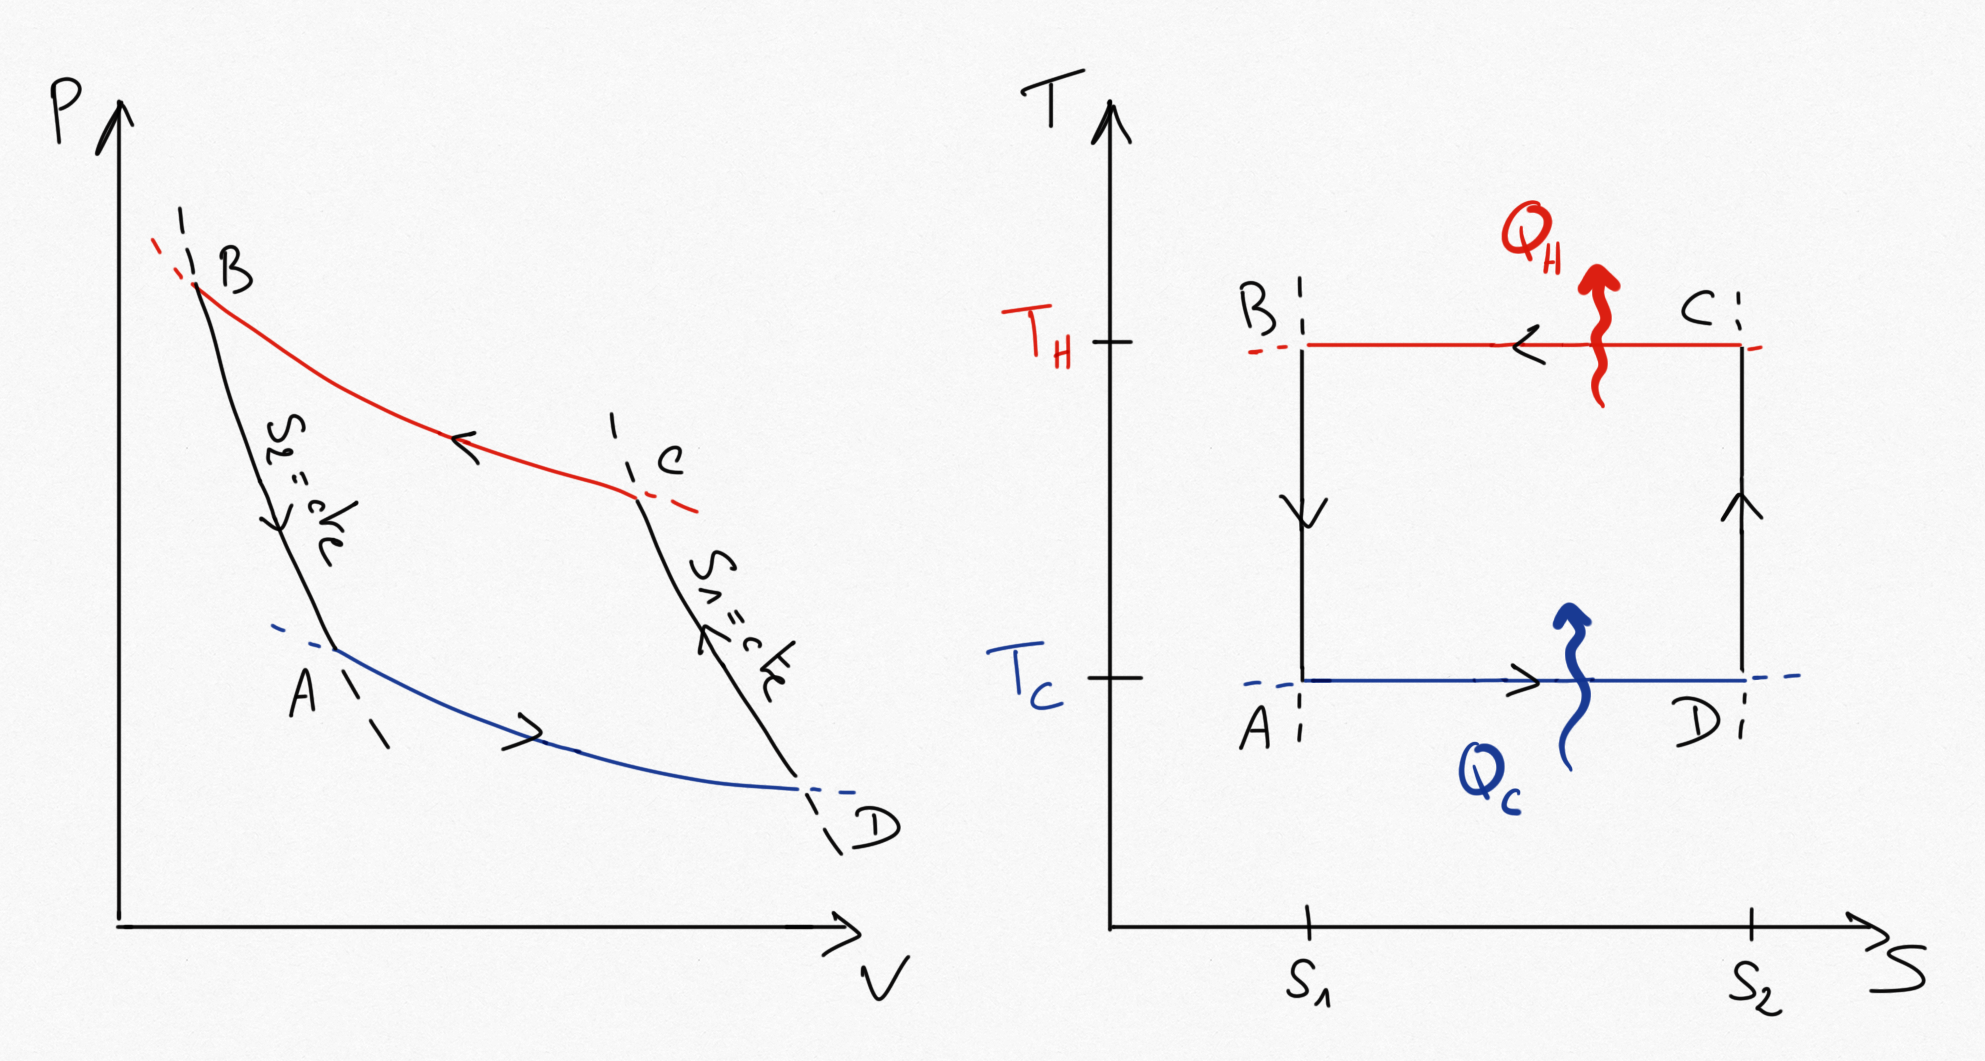 P
B
S₂ = cte
C
S₁ = cte
A
D
V
T
T_H
Q_H
B
C
T_C
A
D
Q_C
S₁
S₂
S